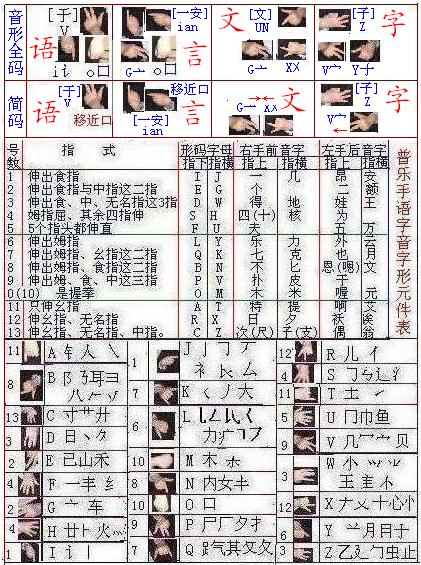 音形全码 [于] V 语 i讠 o口 [一安] ian G亠 o口 言 文 [文] UN G亠 X乂 [子] Z 字 V宀 Y十
简码 语 [于] V 移近口 移近口 [一安] ian 言 文 G亠 X乂 [子] Z 字 V宀
号数 指 式 形码字母 指下 指横 右手前音字 指上 指横 左手后音字 指上 指横
1 伸出食指 I J 一 几 昂 安
2 伸出食指与中指这二指 E G 个 二 额
3 伸出食、中、无名指这3指 D W 得 地 娃 王
4 姆指屈、其余四指伸 S H 四(十) 核 为
5 5个指头都伸直 F U 夫 五 万
6 伸出姆指 L Y 乐 力 外 云
7 伸出姆指、幺指这二指 Q K 七 克 也 月
8 伸出姆指、食指这二指 B N 不 匕 恩(嗯) 文
9 伸出姆、食、中这三指 P V 扑 皮 于
0(10) 是握拳 O M 木 米 喔 元
11 只伸幺指 A T 特 提 啊 艾
12 伸幺指、无名指 R X 日 夕 袄 埃
13 伸幺指、无名指、中指。 C Z 次(尺) 子(支) 偶 翁
普乐手语字音字形元件表
11 A 钅人
8 B 阝耳
13 C 寸艹廾
3 D 日丶
2 E 已山禾
4 F 一丰纟
2 G 亠车
4 H 廿火
1 I 讠丨
1 J 丨 礻长厶
7 K 丿大
6 L 力疒
10 M 木
8 N 内女丰
10 O 口
9 P 尸厂夕扌
7 Q 气其又夂
12 R 儿亻
4 S 辶氵
11 T 土
5 U 冂巾鱼
9 V 几冖宀贝
3 W 小 王圭
12 X 乂十心忄
6 Y 亠月目十
3 Z 乙廴勹虫止